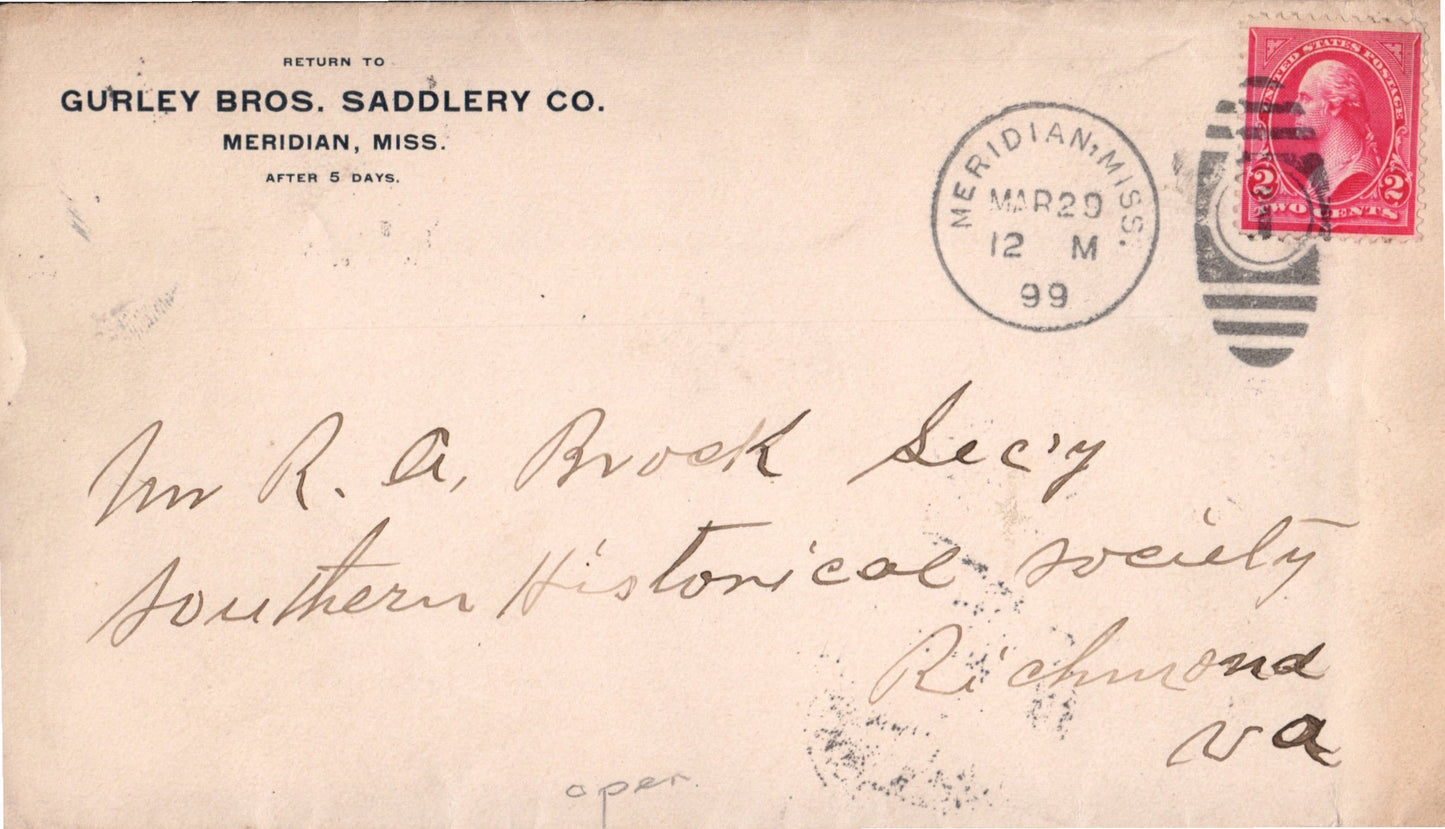 RETURN TO
GURLEY BROS. SADDLERY CO.
MERIDIAN, MISS.
AFTER 5 DAYS.
MERIDIAN, MISS.
MAR 29
12 M
99
UNITED STATES POSTAGE
2 2
TWO CENTS
Mr R. A. Brock Sec'y
Southern Historical Society
Richmond
Va
open